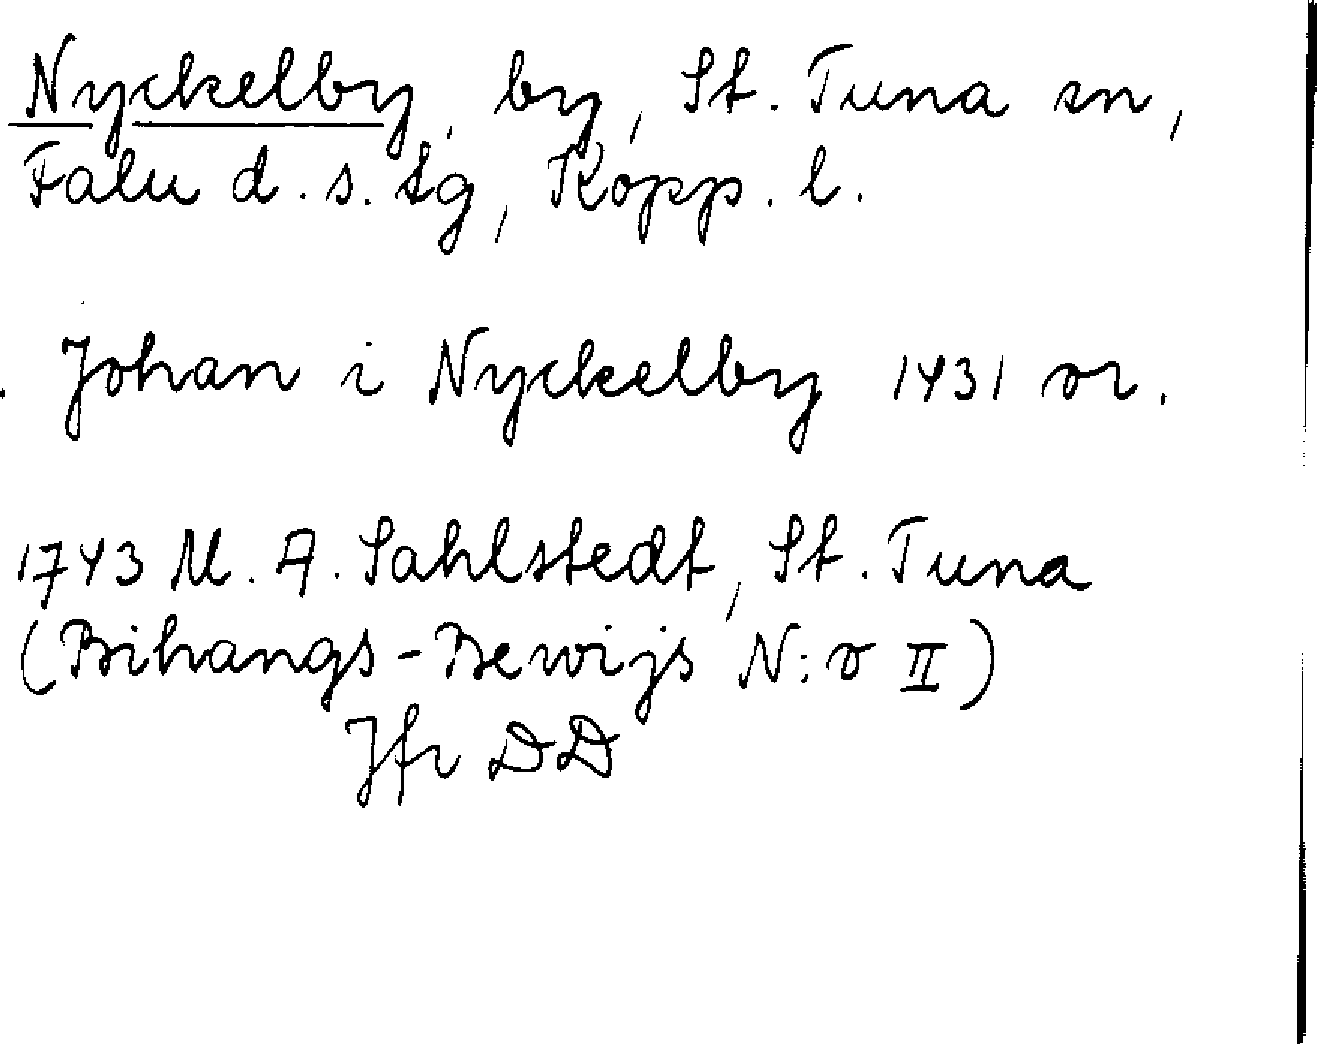 Nyckelby, by, St. Tuna sn,
Falu d. s. tg, Kopp. l.
Johan i Nyckelby 1431 or.
1743 M. A. Sahlstedt, St. Tuna
(Bihangs-Bewijs N:o II)
Jfr DD